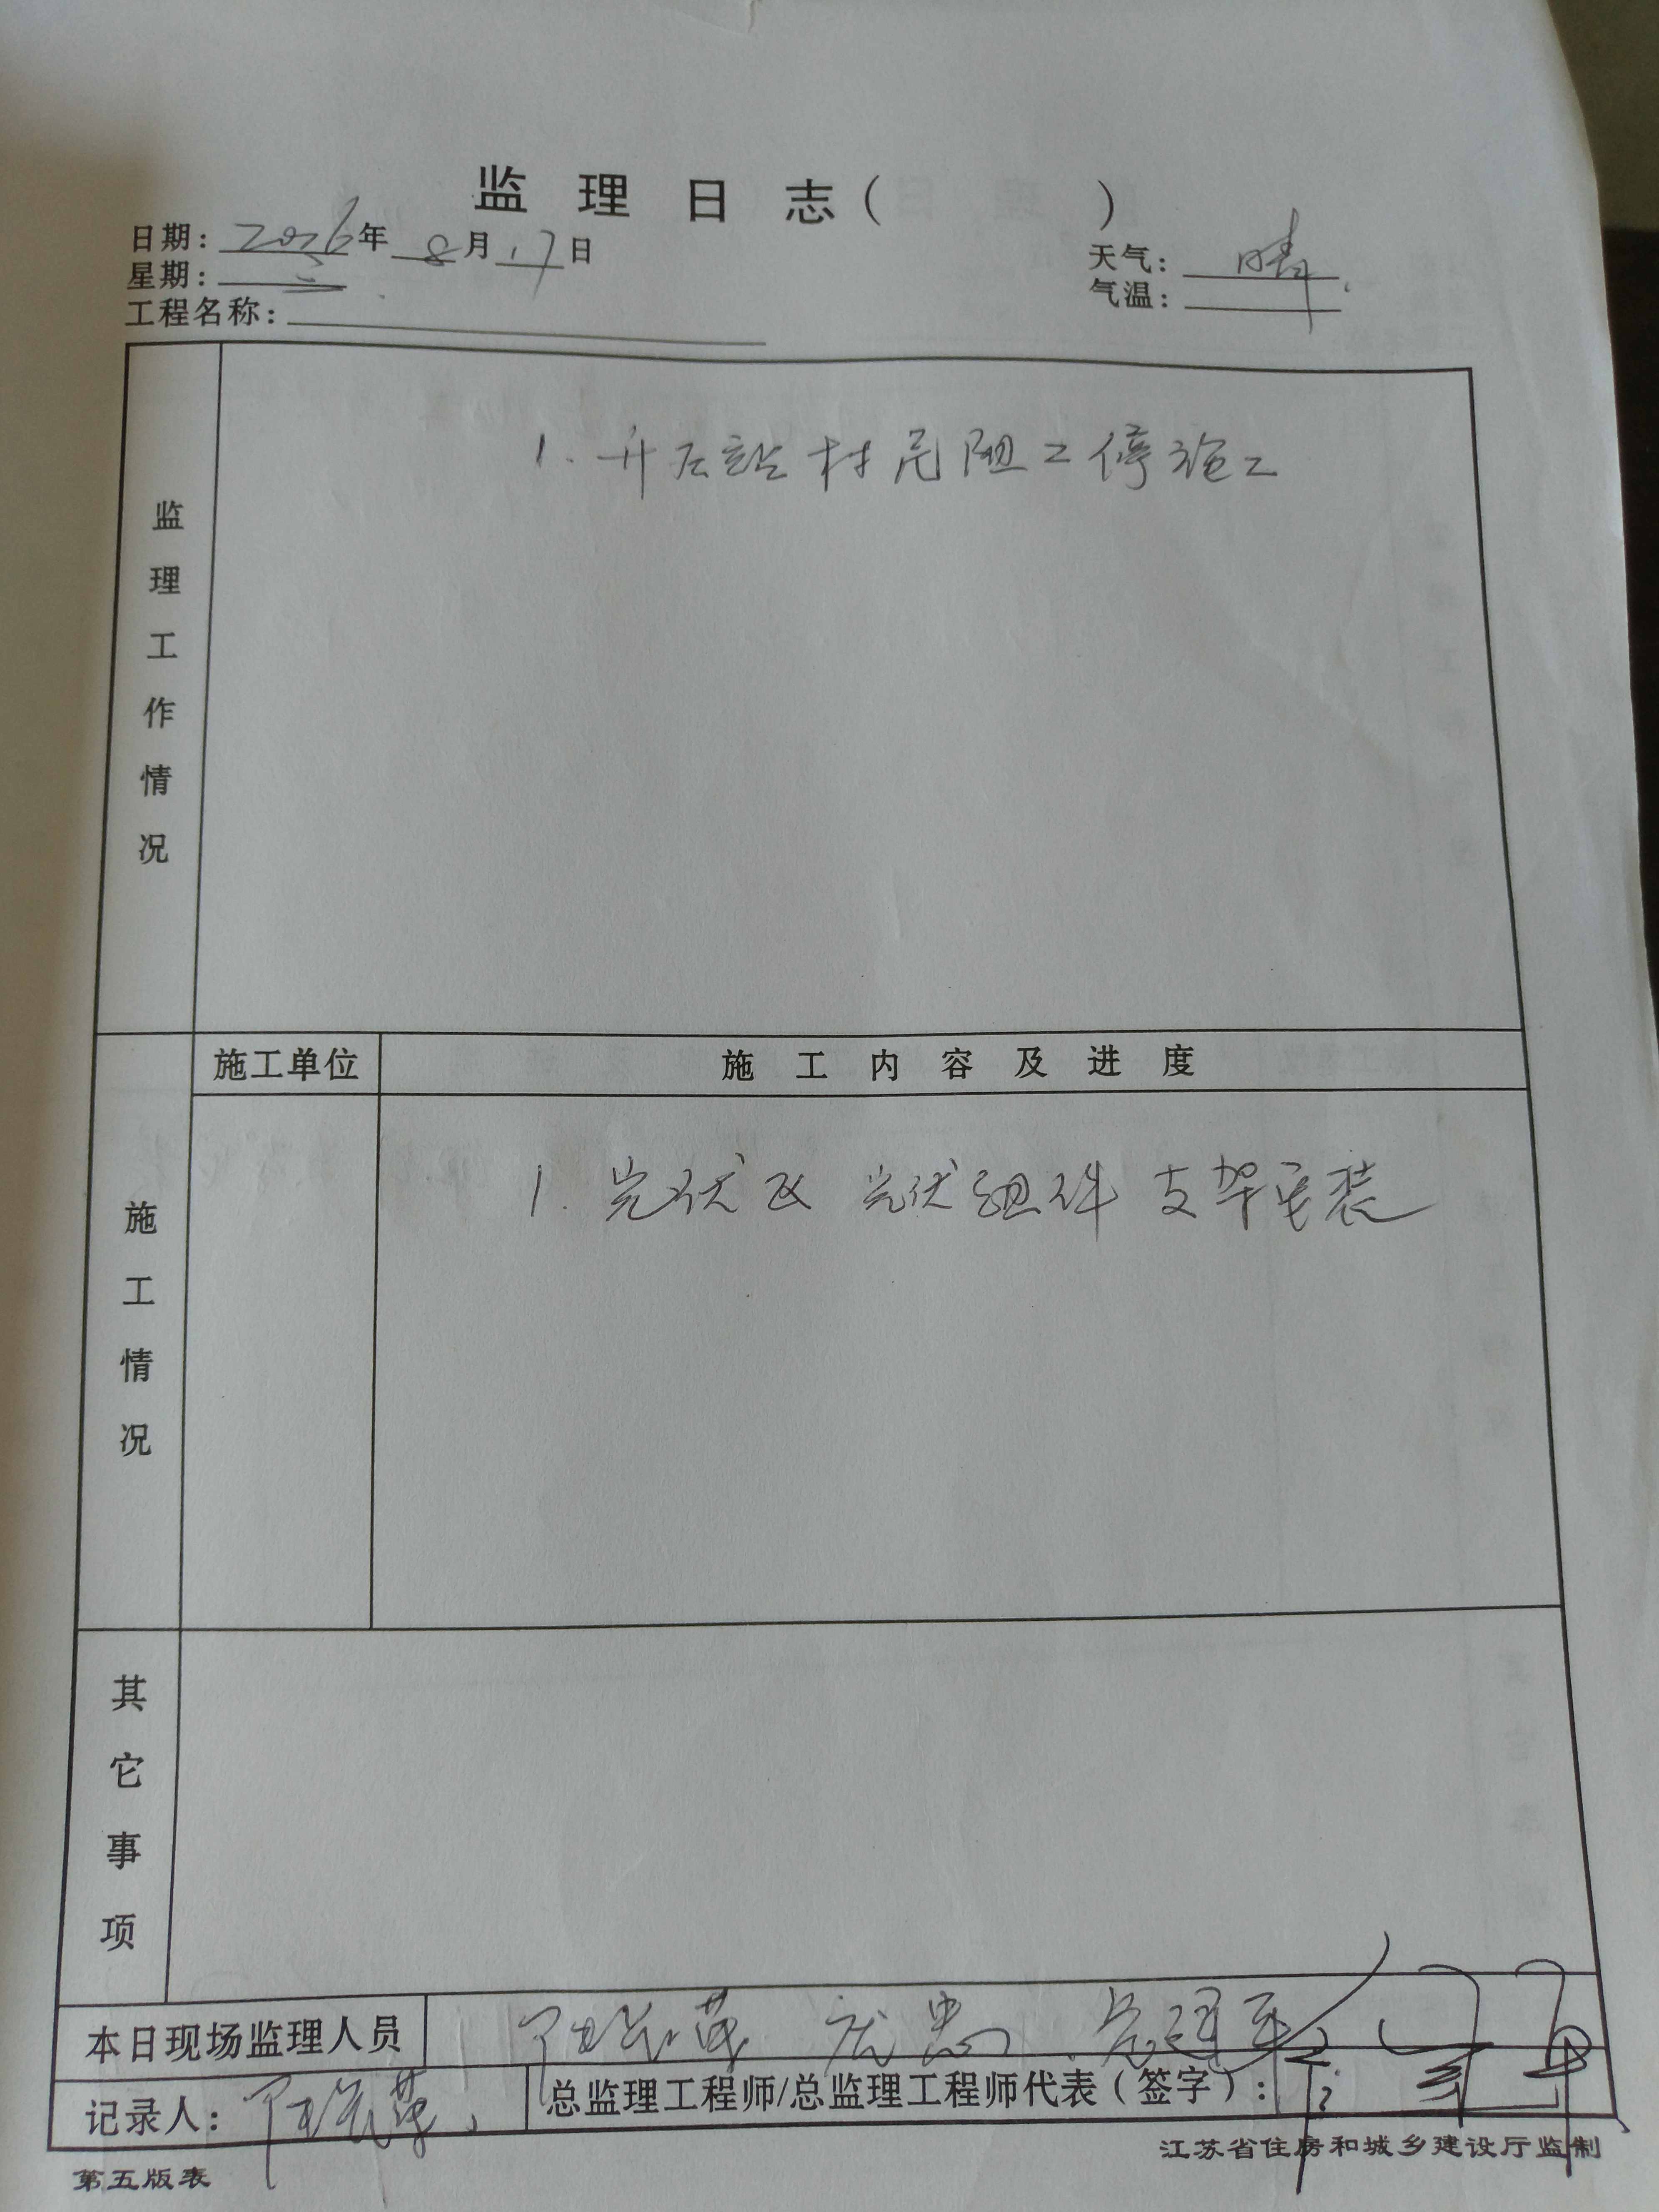 监理日志（ ）
日期：2026年8月17日
天气：晴
星期：三
气温：
工程名称：
监理工作情况
1. 升压站村民阻工停施工
施工情况
施工单位
施工内容及进度
1. 光伏区光伏组件支架安装
其它事项
本日现场监理人员
记录人：
总监理工程师/总监理工程师代表（签字）：
江苏省住房和城乡建设厅监制
第五版表